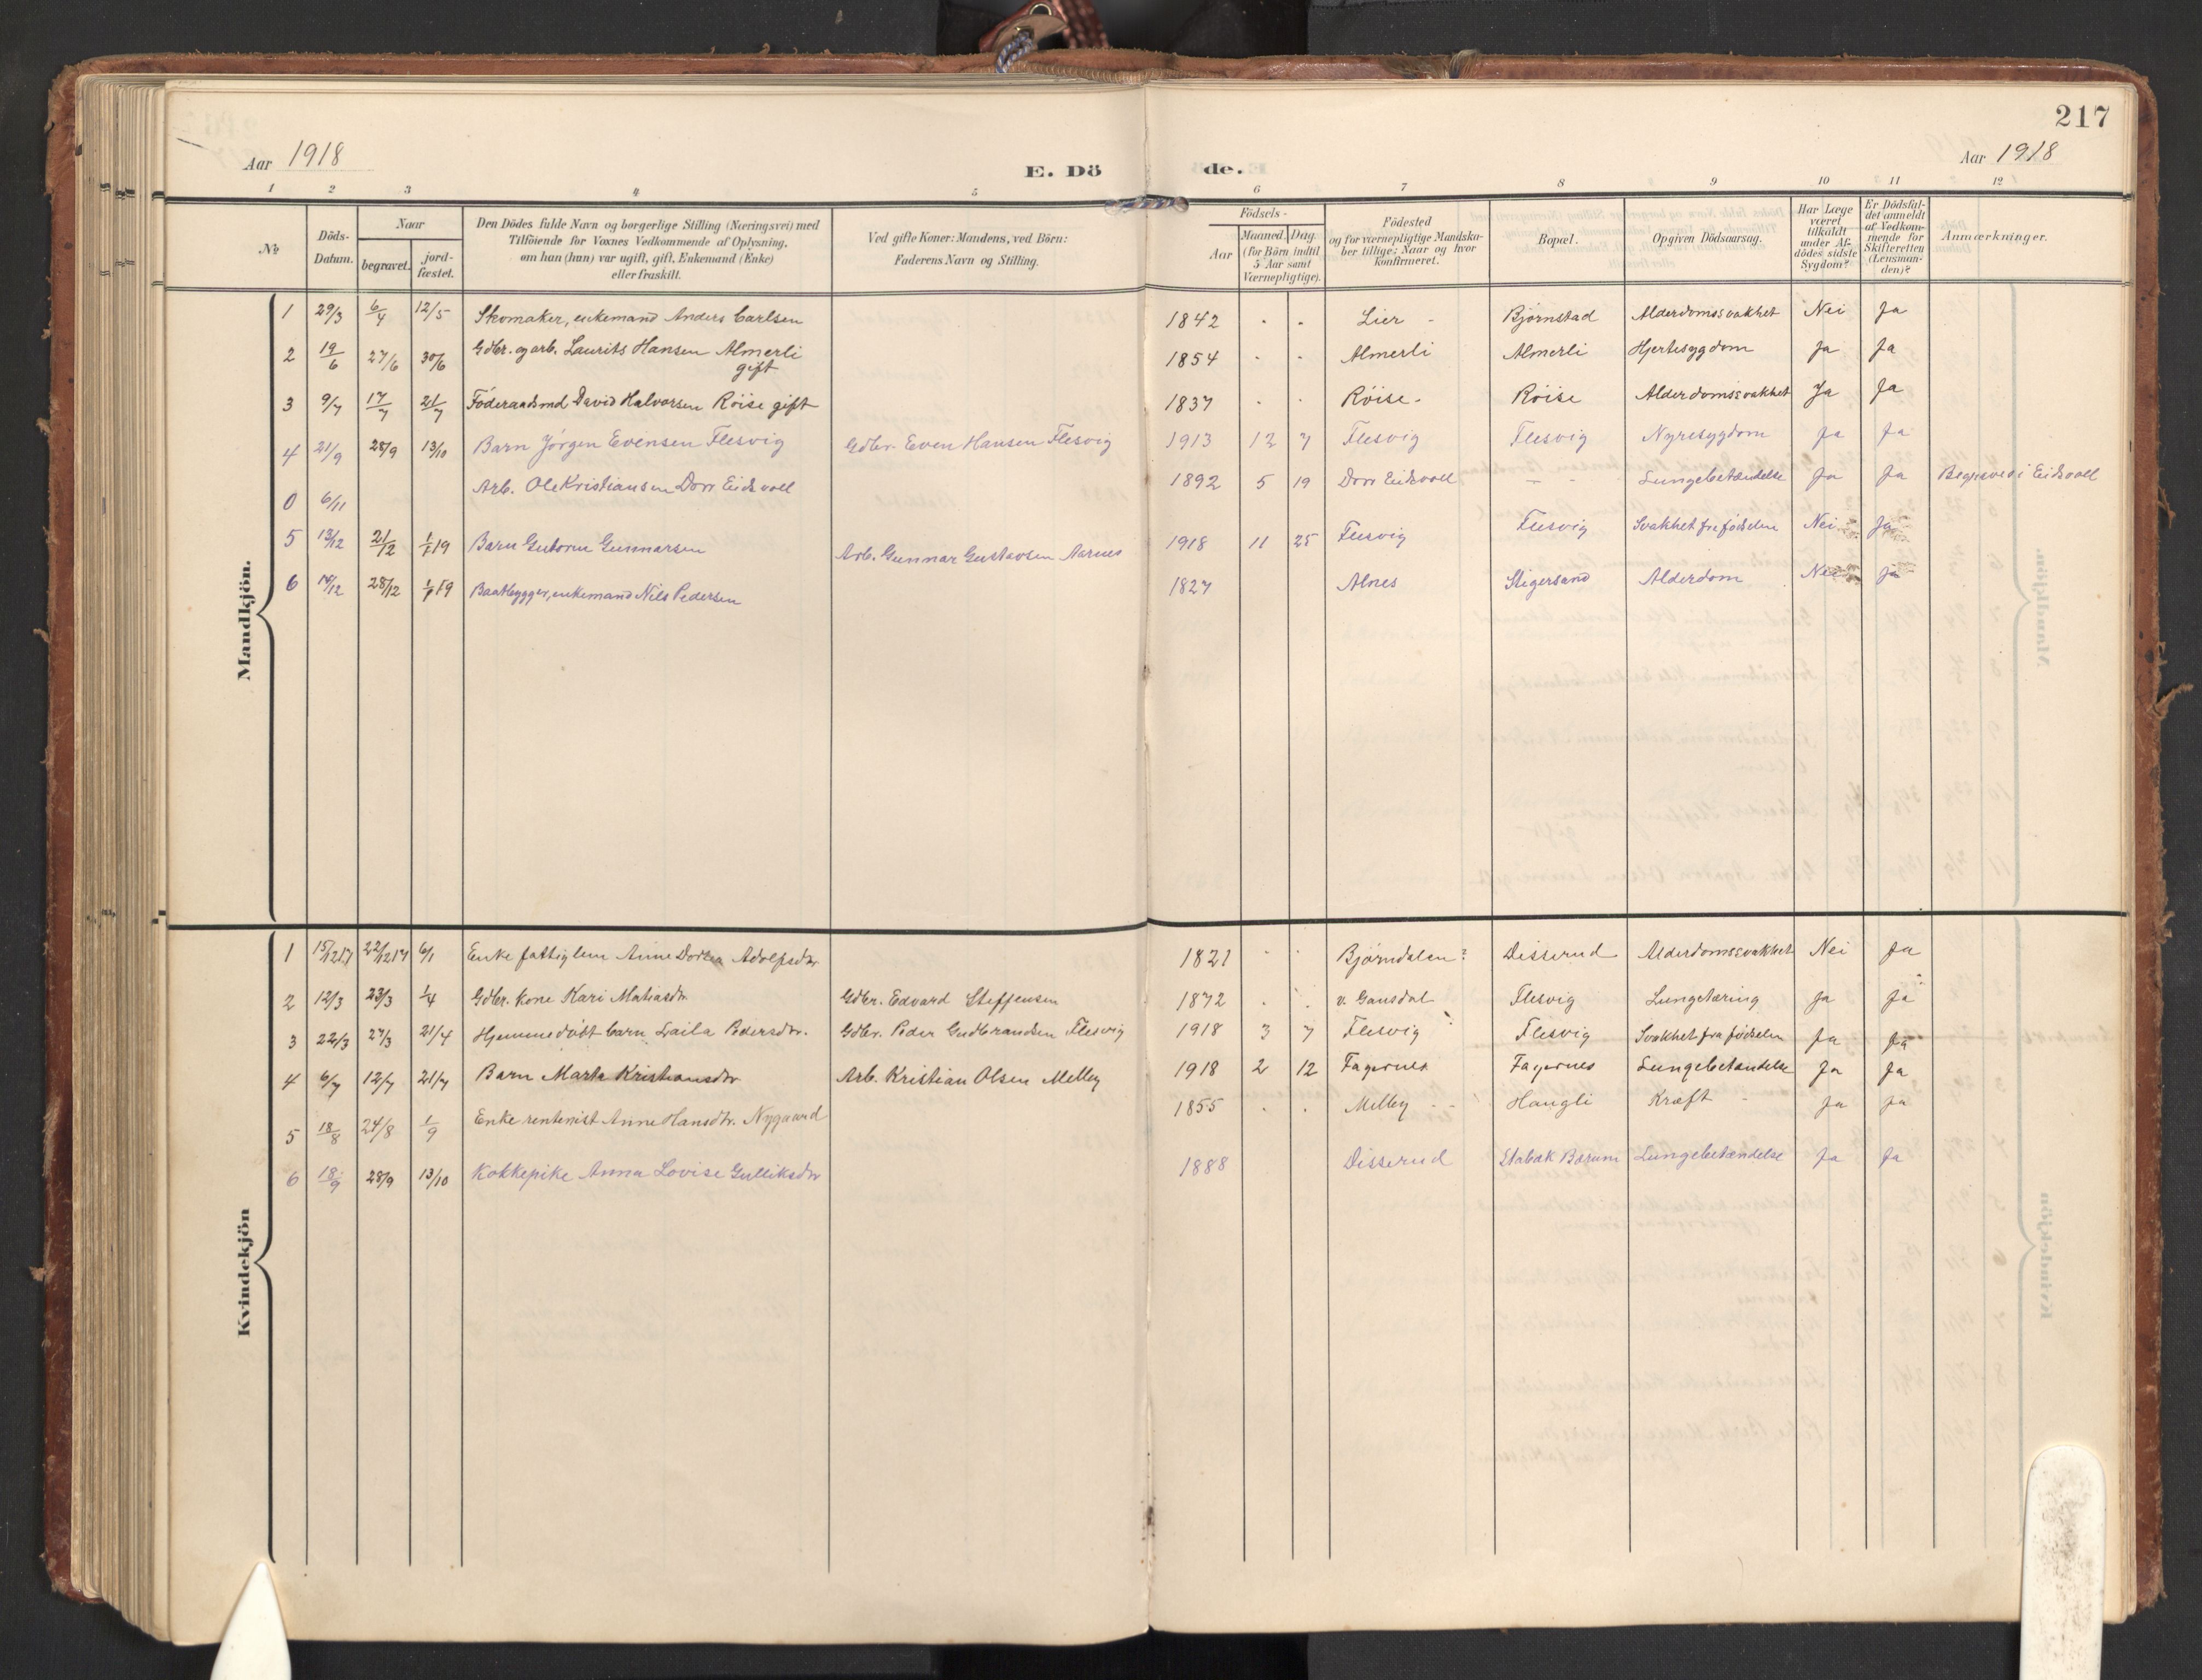 217
Aar 1918
E. Dö
de.
Aar 1918
1 2 3 4 5 6 7 8 9 10 11 12
No.
Döds-
Datum.
Naar
begravet.
jord-
fæstet.
Den Dödes fulde Navn og borgerlige Stilling (Næringsvei) med
Tilföiende for Voxnes Vedkommende af Oplysning,
om han (hun) var ugift, gift, Enkemand (Enke)
eller fraskilt.
Ved gifte Koner: Mandens, ved Börn:
Faderens Navn og Stilling.
Födsels-
Aar
Maaned. Dag.
(for Börn indtil
5 Aar samt
Værnepligtige).
Födested
og for værnepligtige Mandska-
ber tillige: Naar og hvor
konfirmeret.
Bopæl.
Opgiven Dödsaarsag.
Har Læge
været
tilkaldt
under Af-
dödes sidste
Sygdom?
Er Dödsfal-
det anmeldt
af Vedkom-
mende for
Skifteretten
(Lensman-
den)?
Anmærkninger.
Mandkjön.
1 29/3 6/4 12/5 Skomaker, enkemand Anders Carlsen 1842 - - Lier - Bjørnstad Alderdomssvakhet Nei Ja
2 19/6 27/6 30/6 Gdbr. og arb. Laurits Hansen Almerli 1854 - - Almerli Almerli Hjertesygdom Ja Ja
gift
3 9/7 17/7 21/7 Föderaadsmd David Halvorsen Röise gift 1837 - - Röise - Röise Alderdomssvakhet Ja Ja
4 21/9 28/9 13/10 Barn Jörgen Evensen Flesvig Gdbr. Even Hansen Flesvig 1913 12 7 Flesvig Flesvig Nyresygdom Ja Ja
0 6/11 Arb. Ole Kristiansen Dorr Eidsvoll 1892 5 19 Dorr Eidsvoll - - Lungebetændelse Ja Ja Begravet i Eidsvoll
5 13/12 21/12 1/1 19 Barn Gutorm Gunnarsen Arb. Gunnar Gustavsen Aarnes 1918 11 25 Flesvig Flesvig Svakhet fra fødselen Nei Ja
6 28/12 1/1 19 Baatbygger, enkemand Nils Pedersen 1827 Alnes Stigersand Alderdom Nei Ja
Kvindekjön
1 15/12 17 22/12 17 6/1 Enke fattiglem Anne Dortea Adolfsdtr 1821 - - Bjørndalen? Disserud Alderdomssvakhet Nei Ja
2 12/3 23/3 1/4 Gdbr. kone Kari Matiasdtr. Gdbr. Edvard Steffensen 1872 - - v. Gausdal Flesvig Lungetæring Ja Ja
3 22/3 27/3 21/4 Hjemmedöbt barn Laila Pedersdtr. Gdbr. Peder Gudbrandsen Flesvig 1918 3 7 Flesvig Flesvig Svakhet fra fødselen Ja Ja
4 6/7 12/7 21/7 Barn Marta Kristiansdtr Arb. Kristian Olsen Melby 1918 2 12 Fagernes Fagernes Lungebetændelse Ja Ja
5 18/8 24/8 1/9 Enke rentenist Anne Hansdtr. Nygaard 1855 - - Melby - - Haugli Kræft - Ja Ja
6 18/9 28/9 13/10 Kokkepike Anna Lovise Gulliksdtr 1888 Disserud Stabæk Bærum Lungebetændelse Ja Ja